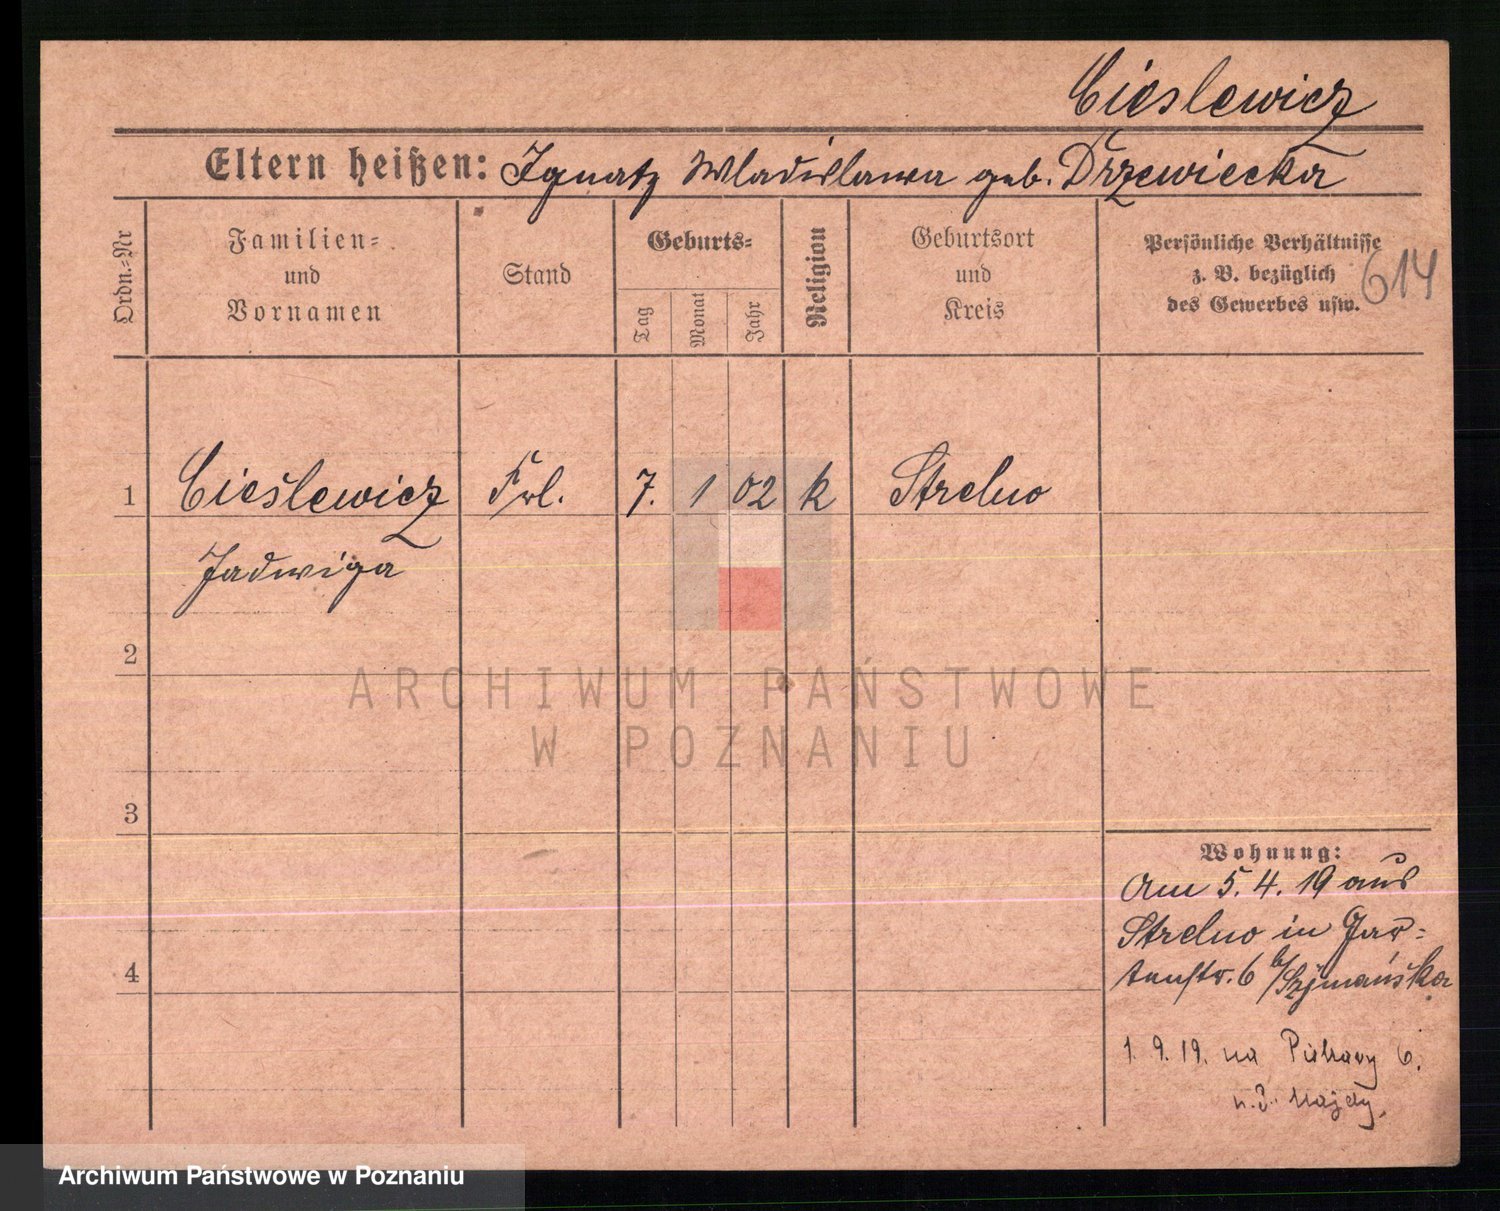 Cieslewicz
Eltern heißen: Ignatz Wladislawa geb. Drzewiecka
Ordn.-Nr
Familien- und Vornamen
Stand
Geburts-
Tag
Monat
Jahr
Religion
Geburtsort und Kreis
Persönliche Verhältnisse
z. B. bezüglich
des Gewerbes usw.
614
1 Cieślewicz Frl. 7. 1 02 k Strelno
Jadwiga
2
3
4
Wohnung:
Am 5. 4. 19 aus
Strelno in Gar-
tenstr. 6 b/Szymańska
1. 9. 19. na Piekary 6.
u. P. Majdy.
ARCHIWUM PAŃSTWOWE
W POZNANIU
Archiwum Państwowe w Poznaniu